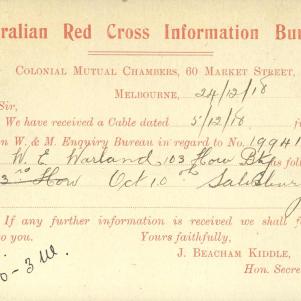 ralian Red Cross Information Bu
COLONIAL MUTUAL CHAMBERS, 60 MARKET STREET,
MELBOURNE, 24/12/18
Sir,
We have received a Cable dated 5/12/18 f
n W. & M. Enquiry Bureau in regard to No. 19941
W. E. Warland 103 How Bty is follo
3 How Oct 10th Salisbury
If any further information is received we shall f
to you. Yours faithfully,
J. BEACHAM KIDDLE,
Hon. Secre